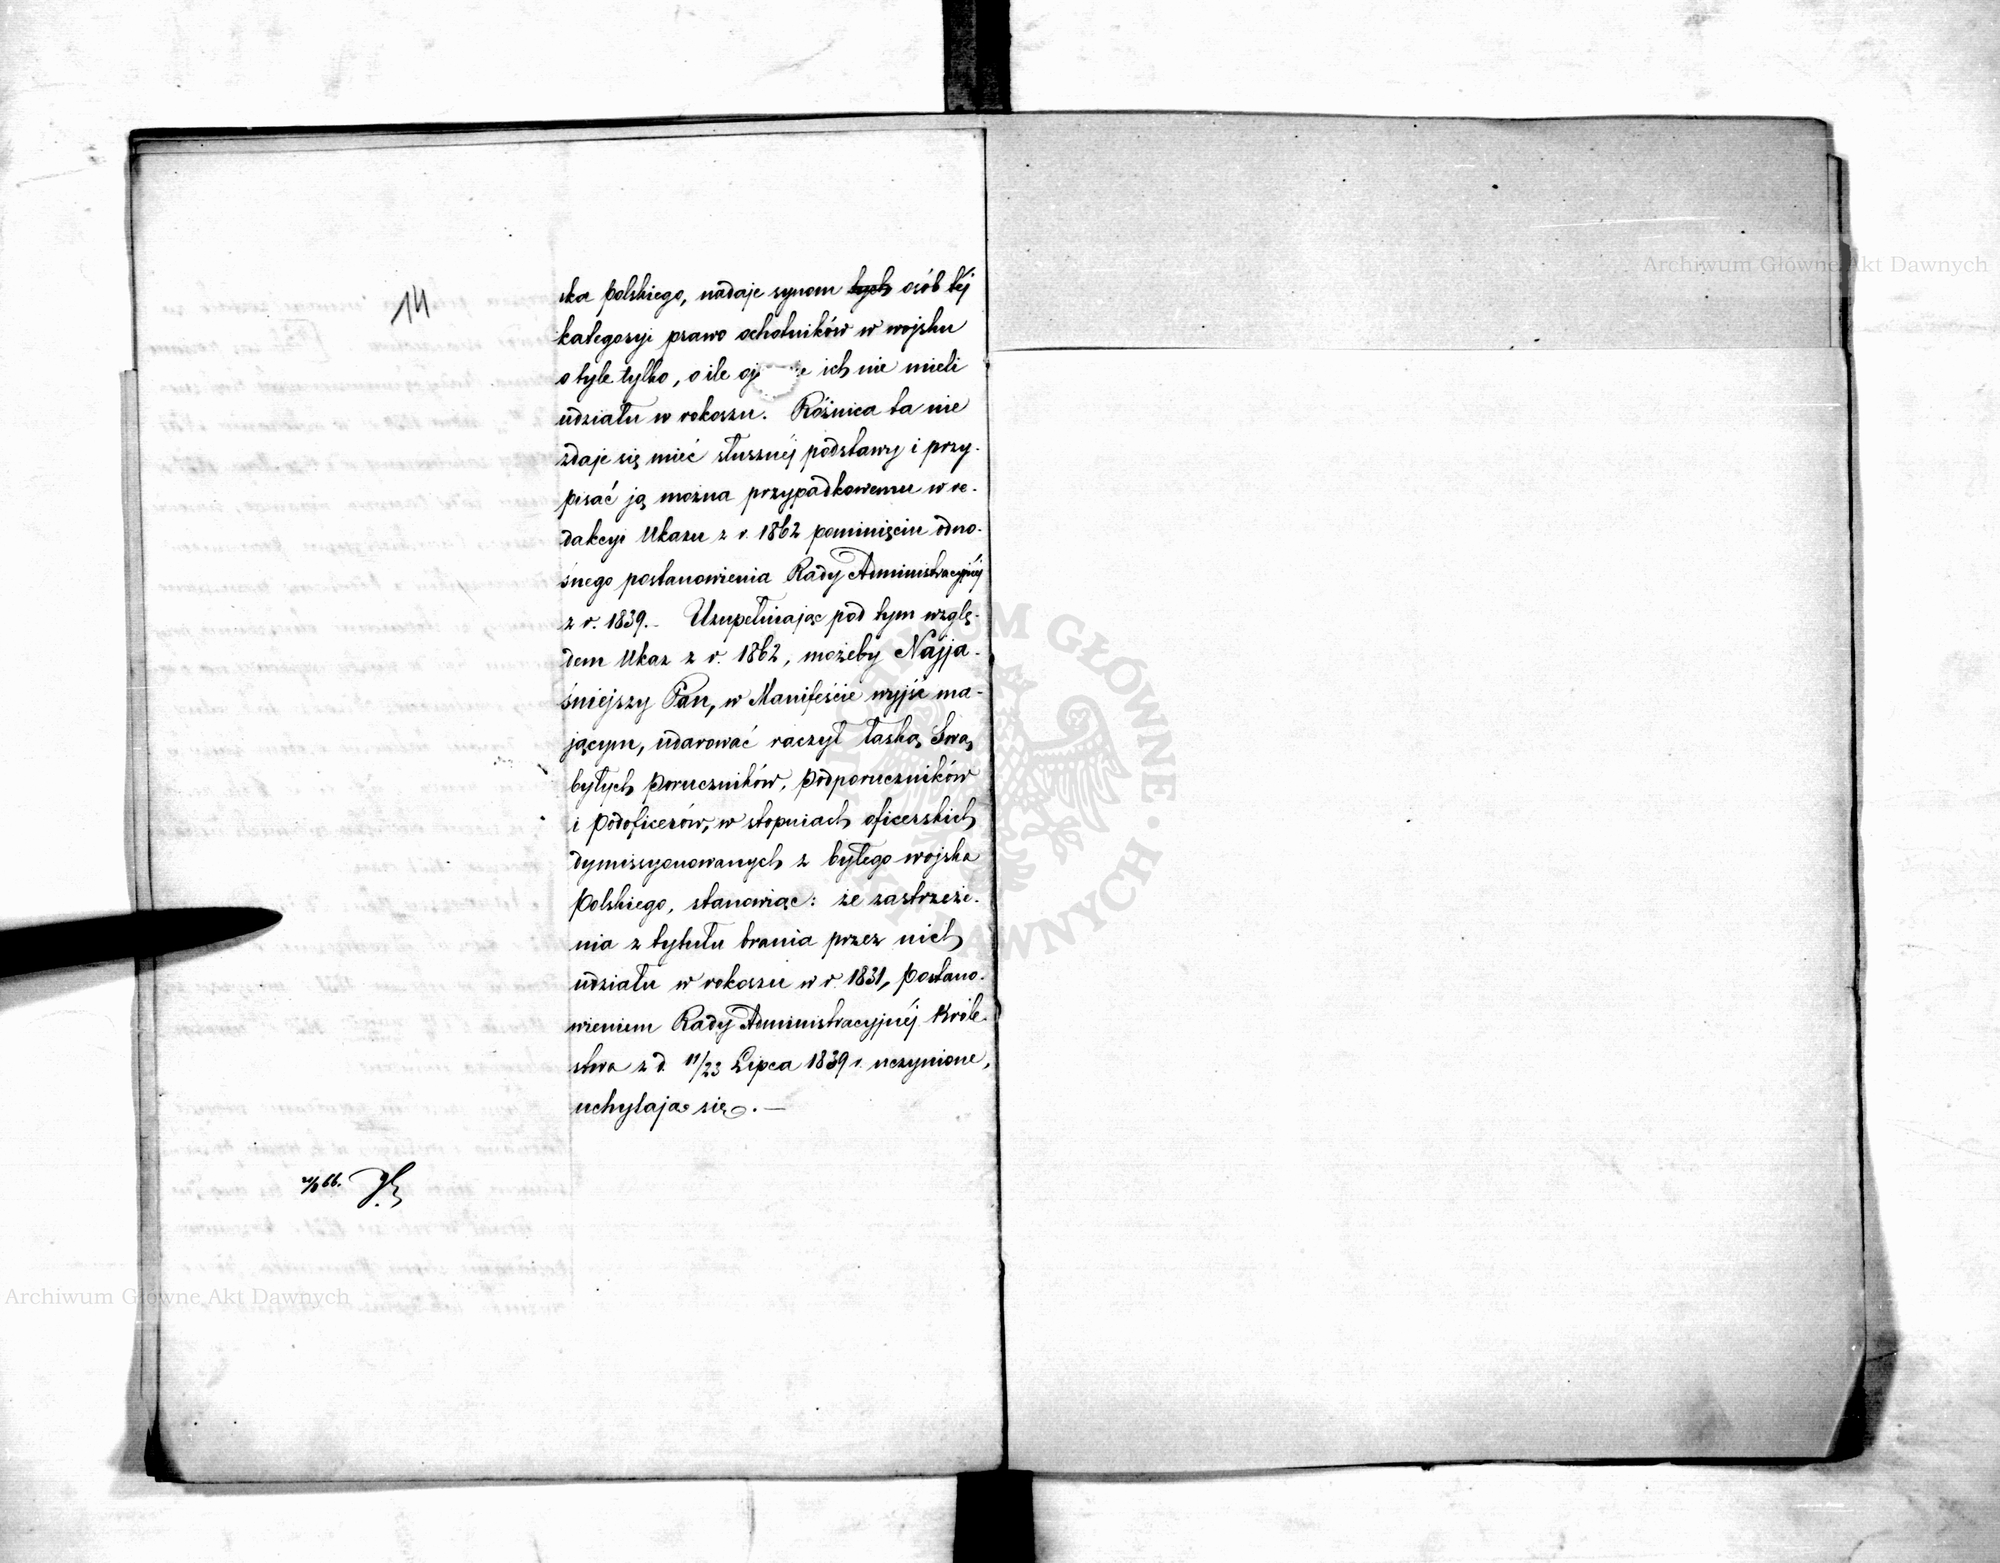 14
ska polskiego, nadaje synom tych osób téj
kategoryi prawo ochotników w wojsku
o tyle tylko, o ile ich nie mieli
udziału w rokoszu. Różnica ta nie
zdaje się mieć słusznéj podstawy i przy-
pisać ją można przypadkowemu w re-
dakcyi Ukazu z r. 1862 pominięciu odno-
śnego postanowienia Rady Administracyjnéj
z r. 1839. - Uzupełniając pod tym wzglę-
dem Ukaz z r. 1862, możeby Najja-
śniejszy Pan, w Manifeście wyjść ma-
jącym, udarować raczył łaską Swą
byłych Poruczników, Podporuczników
i Podoficerów, w stopniach oficerskich
dymissyonowanych z byłego wojska
Polskiego, stanowiąc: że zastrzeże-
nia z tytułu brania przez nich
udziału w rokoszu w r. 1831, Postano-
wieniem Rady Administracyjnéj Króle-
stwa z d. 11/23 Lipca 1839 r. uczynione,
uchylają się. —
66.
Archiwum Główne Akt Dawnych
Archiwum Główne Akt Dawnych
ARCHIWUM GŁÓWNE AKT DAWNYCH